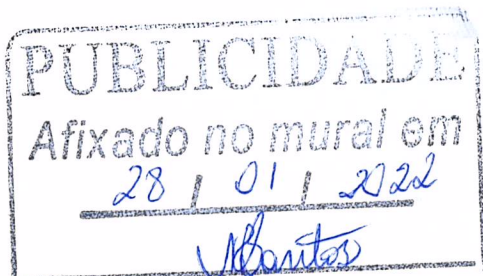 PUBLICIDADE
Afixado no mural em
28 / 01 / 2022